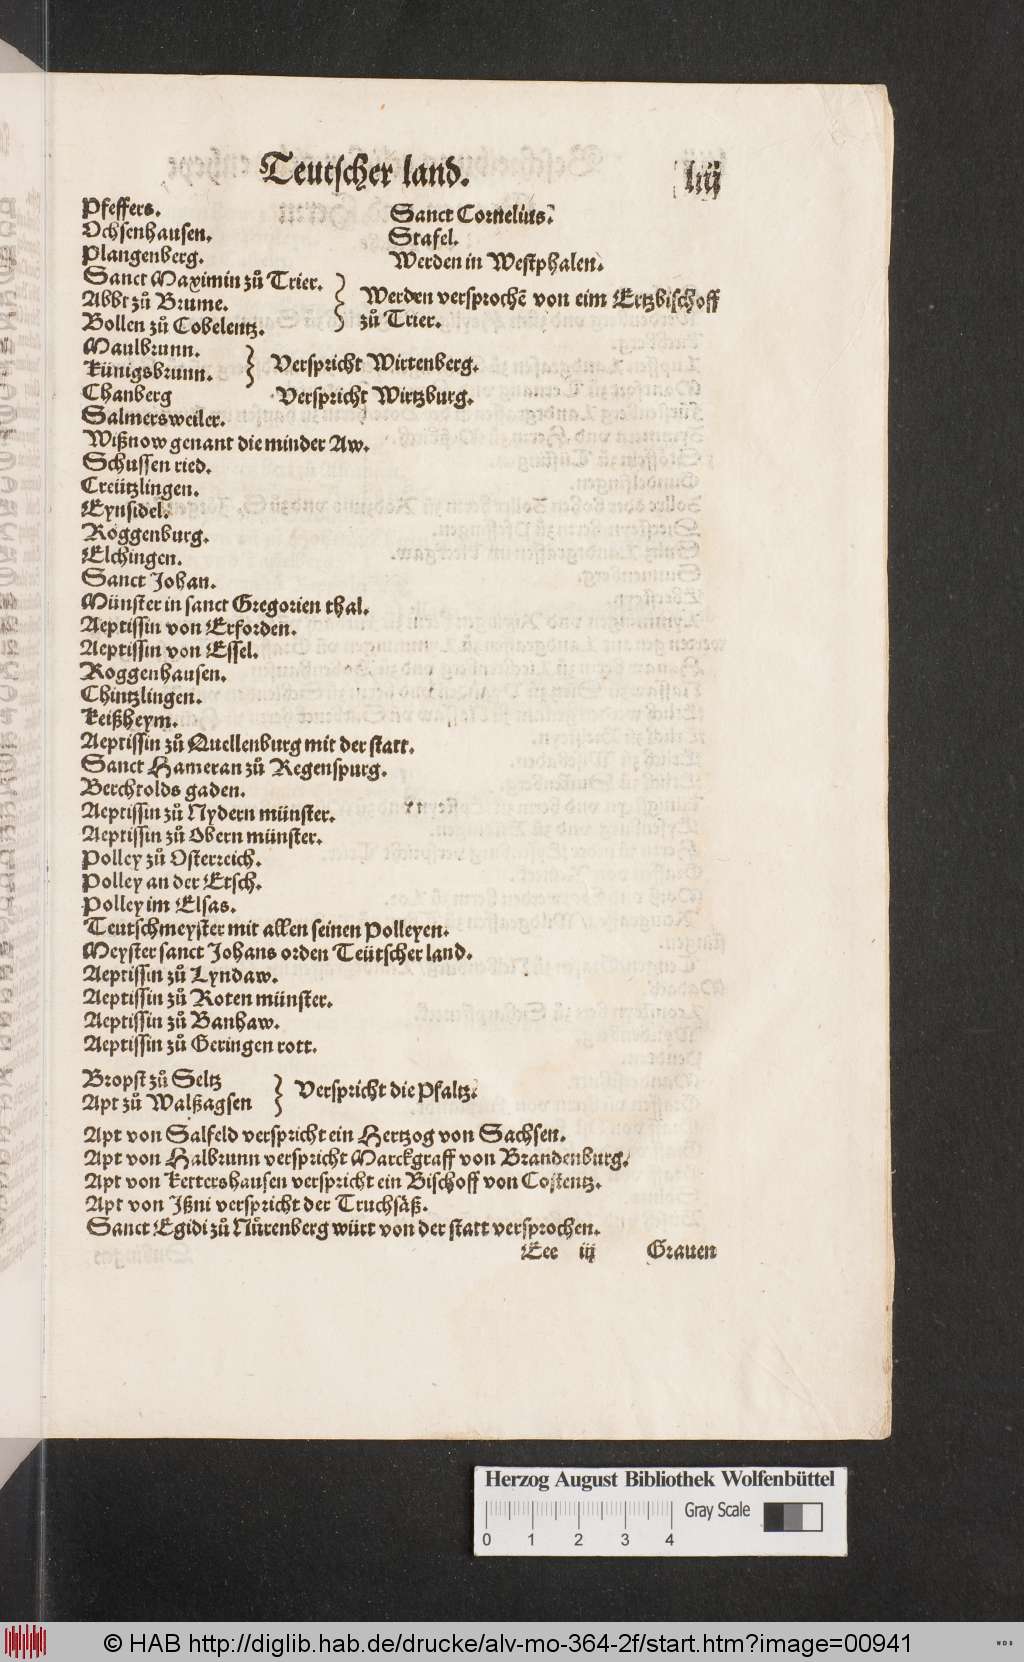 Teutscher land. liij
Pfeffers. Sanct Cornelius.
Ochsenhausen. Stafel.
Plangenberg. Werden in Westphalen.
Sanct Maximin zů Trier.
Abbt zů Brume. Werden versprochē von eim Ertzbischoff
Bollen zů Cobelentz. zů Trier.
Maulbrunn.
Künigsbrunn. Verspricht Wirtenberg.
Chanberg Verspricht Wirtzburg.
Salmersweiler.
Wißnow genant die minder Aw.
Schussen ried.
Creützlingen.
Eynsidel.
Roggenburg.
Elchingen.
Sanct Johan.
Münster in sanct Gregorien thal.
Aeptissin von Erforden.
Aeptissin von Essel.
Roggenhausen.
Chintzlingen.
Keißheym.
Aeptissin zů Quellenburg mit der statt.
Sanct Hameran zů Regenspurg.
Berchtolds gaden.
Aeptissin zů Nydern münster.
Aeptissin zů Obern münster.
Polley zů Osterreich.
Polley an der Etsch.
Polley im Elsas.
Teutschmeyster mit allen seinen Polleyen.
Meyster sanct Johans orden Teütscher land.
Aeptissin zů Lyndaw.
Aeptissin zů Roten münster.
Aeptissin zů Banhaw.
Aeptissin zů Geringen rott.
Bropst zů Seltz
Apt zů Walßagsen Verspricht die Pfaltz.
Apt von Salfeld verspricht ein Hertzog von Sachsen.
Apt von Halbrunn verspricht Marckgraff von Brandenburg.
Apt von Kettershausen verspricht ein Bischoff von Costentz.
Apt von Ißni verspricht der Truchsäß.
Sanct Egidi zů Nürenberg würt von der statt versprochen.
Eee iij Grauen
Herzog August Bibliothek Wolfenbüttel
Gray Scale
0 1 2 3 4
© HAB http://diglib.hab.de/drucke/alv-mo-364-2f/start.htm?image=00941